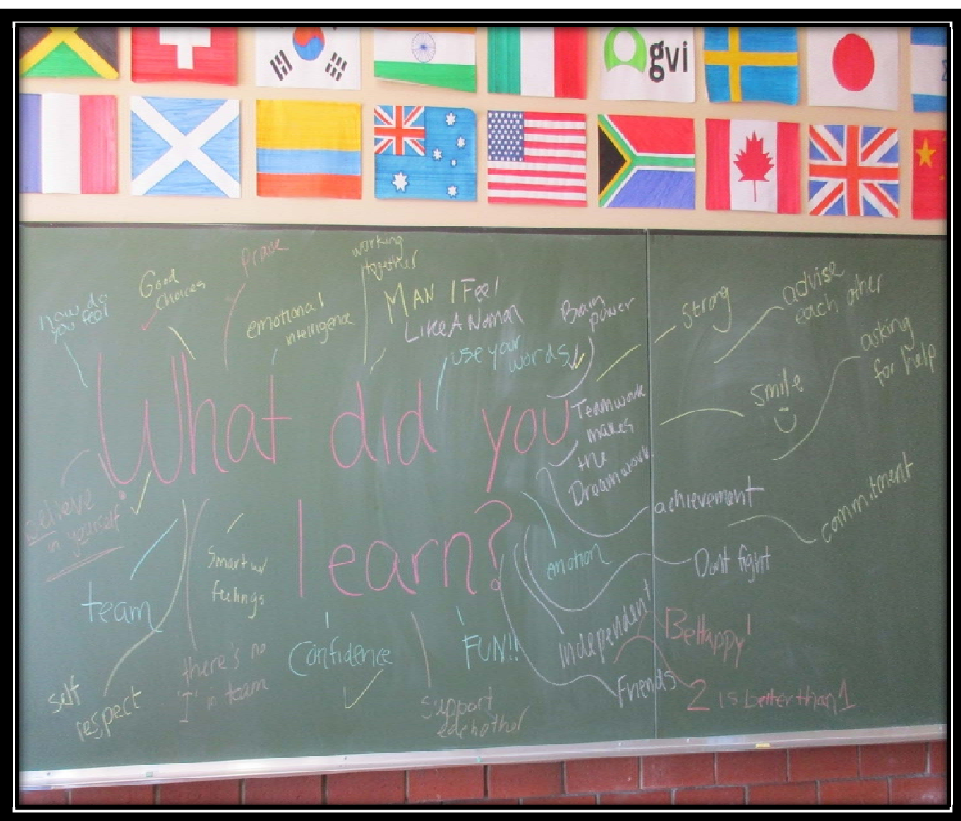 gvi
How do
you feel
Good
choices
Praise
emotional
intelligence
working
together
MAN I FEEl
LIKE A WOMAN
use your
words
Brain
power
Strong
advise
each other
asking
for help
Smile
What did you
learn?
Teamwork
makes
the
Dreamwork
achievement
commitment
Dont fight
believe
in yourself
team
Smart w/
feelings
emotion
independent
Be Happy!
self
respect
there's no
'I' in team
Confidence
FUN!!
Support
eachother
Friends
2 is better than 1